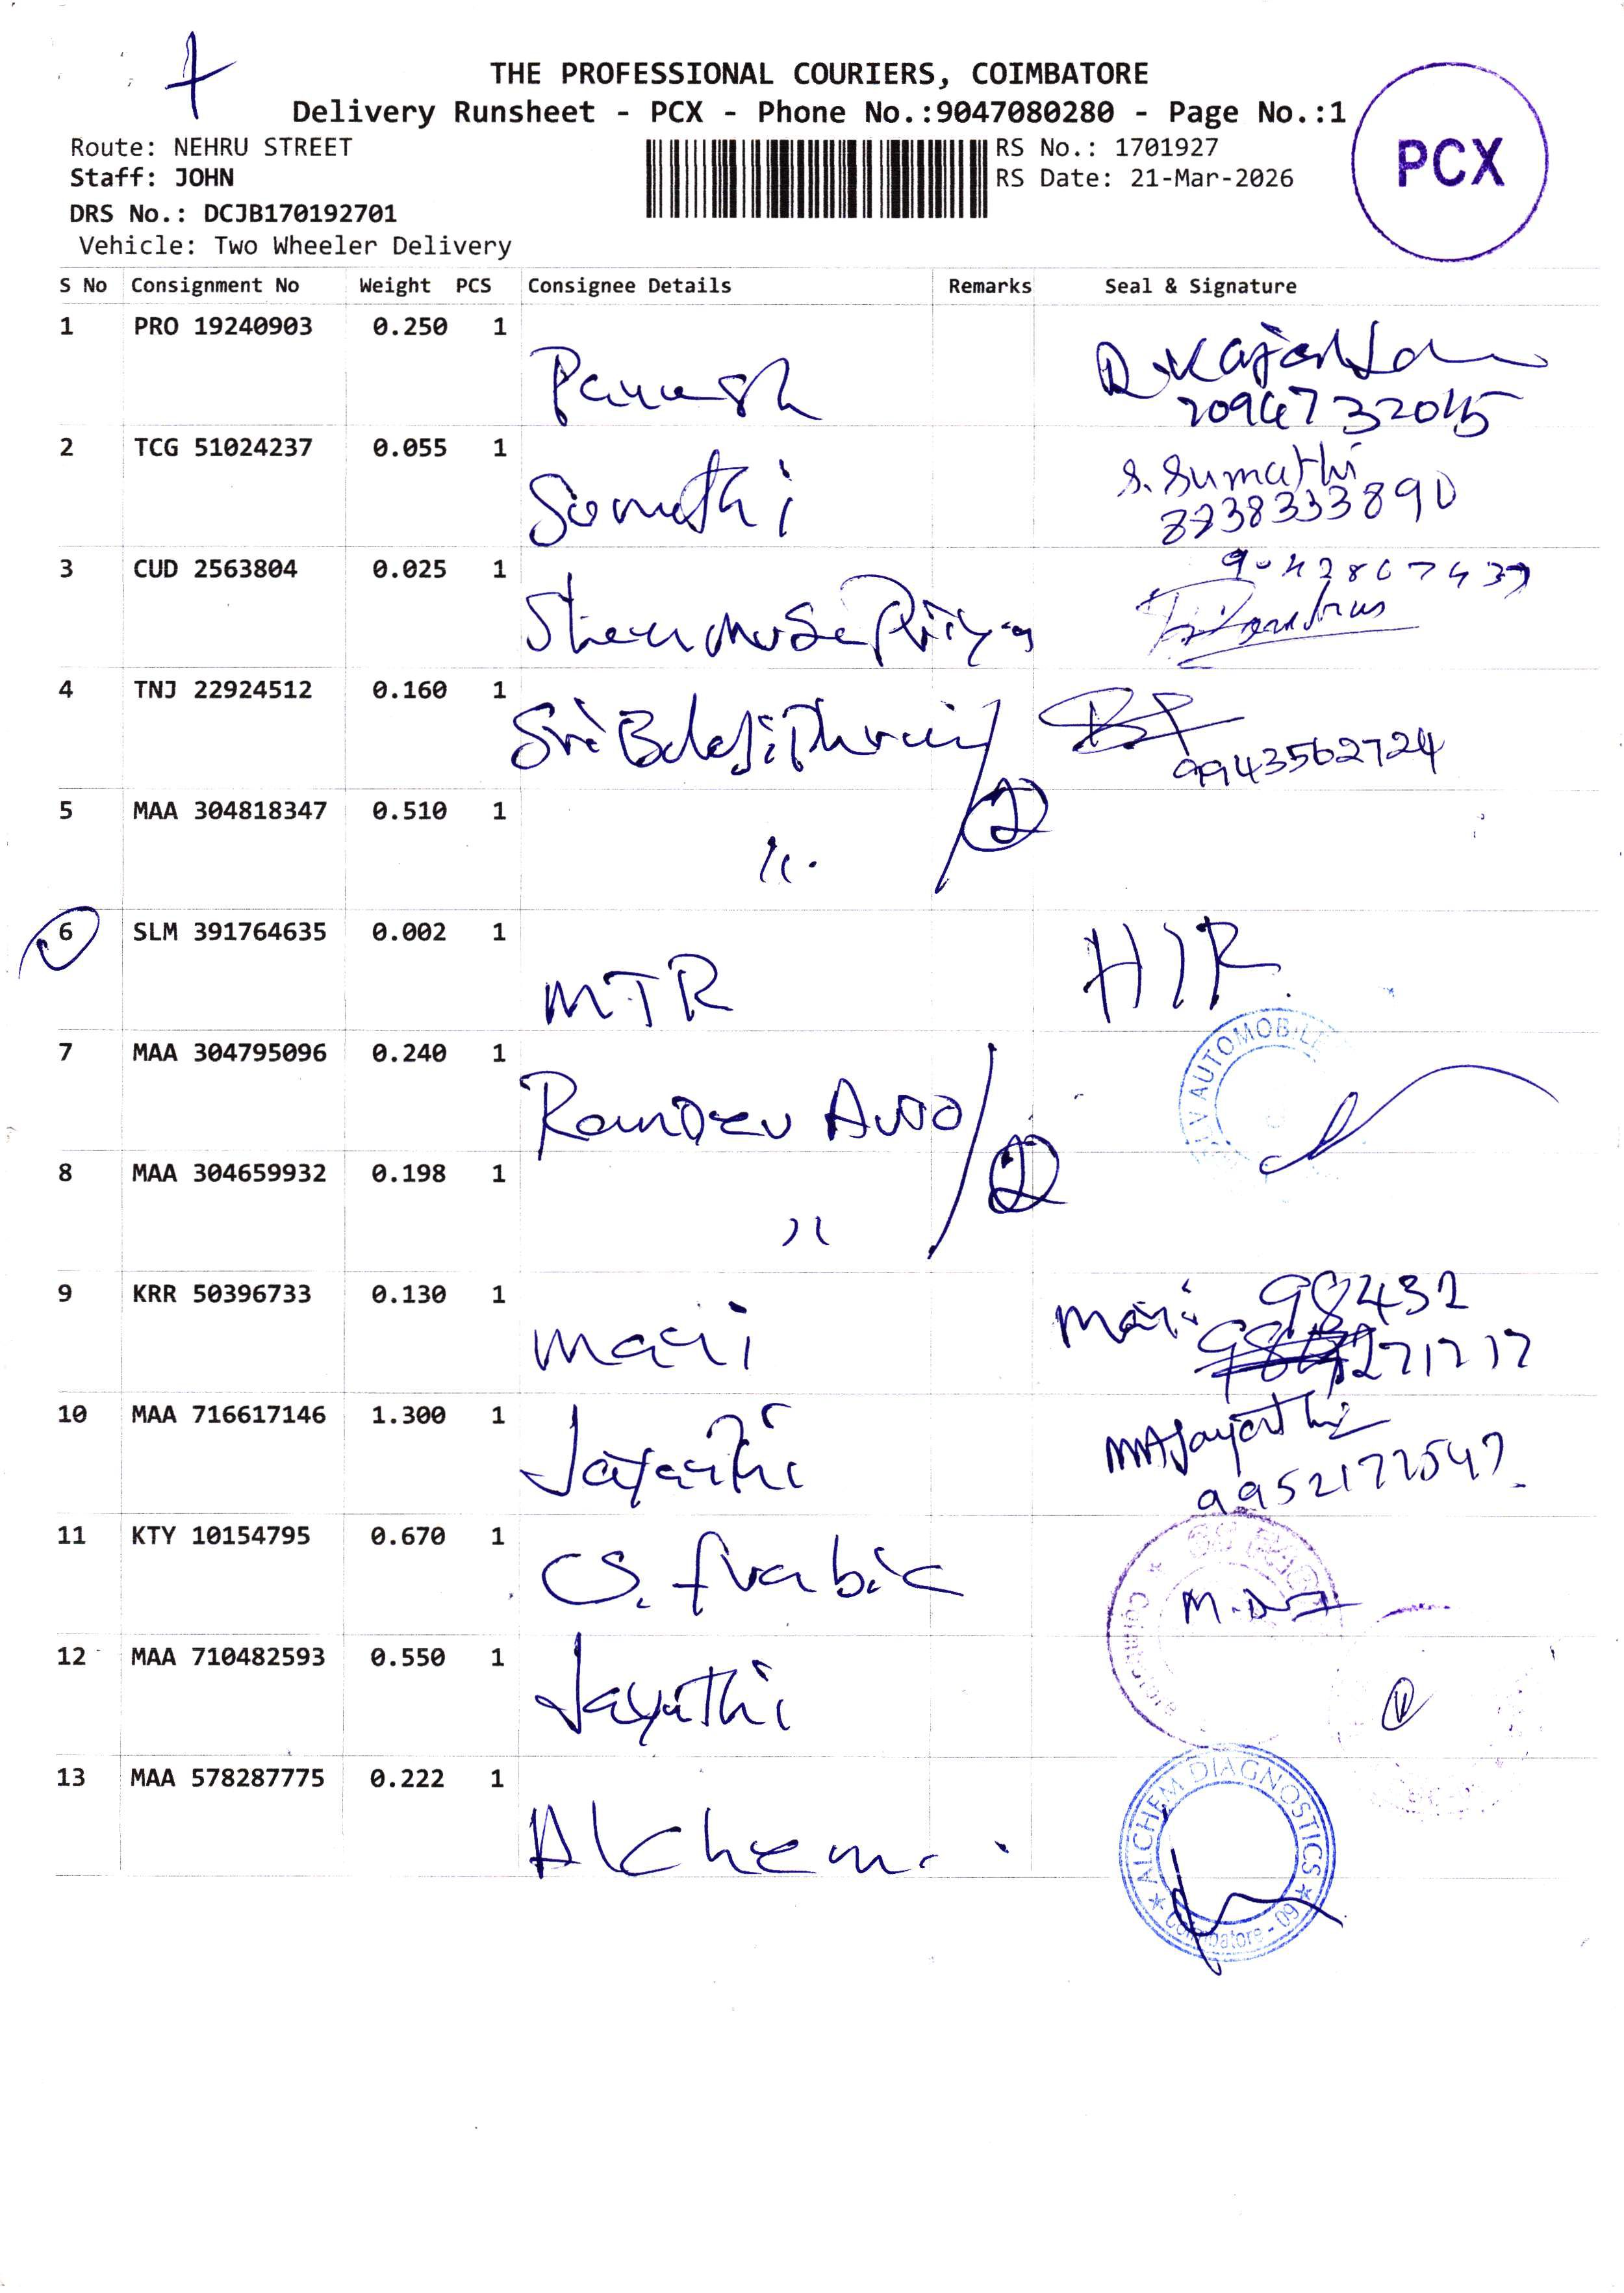 THE PROFESSIONAL COURIERS, COIMBATORE
Delivery Runsheet - PCX - Phone No.:9047080280 - Page No.:1
PCX
Route: NEHRU STREET
RS No.: 1701927
Staff: JOHN
RS Date: 21-Mar-2026
DRS No.: DCJB170192701
Vehicle: Two Wheeler Delivery
S No Consignment No Weight PCS Consignee Details Remarks Seal & Signature
1 PRO 19240903 0.250 1
2 TCG 51024237 0.055 1 Sumathi S. Sumathi
8738333890
3 CUD 2563804 0.025 1
4 TNJ 22924512 0.160 1 Sri Balaji
9943562724
5 MAA 304818347 0.510 1 2
6 SLM 391764635 0.002 1 MTR
7 MAA 304795096 0.240 1 Ramdev Auto AUTOMOBILE
8 MAA 304659932 0.198 1 " 2
9 KRR 50396733 0.130 1 mari Mari 98432
271717
10 MAA 716617146 1.300 1 Jayanthi Jayanthi
9952177547
11 KTY 10154795 0.670 1 CS.
12 MAA 710482593 0.550 1 Jayanthi
13 MAA 578287775 0.222 1 Alchem. ALCHEM DIAGNOSTICS
Coimbatore - 09